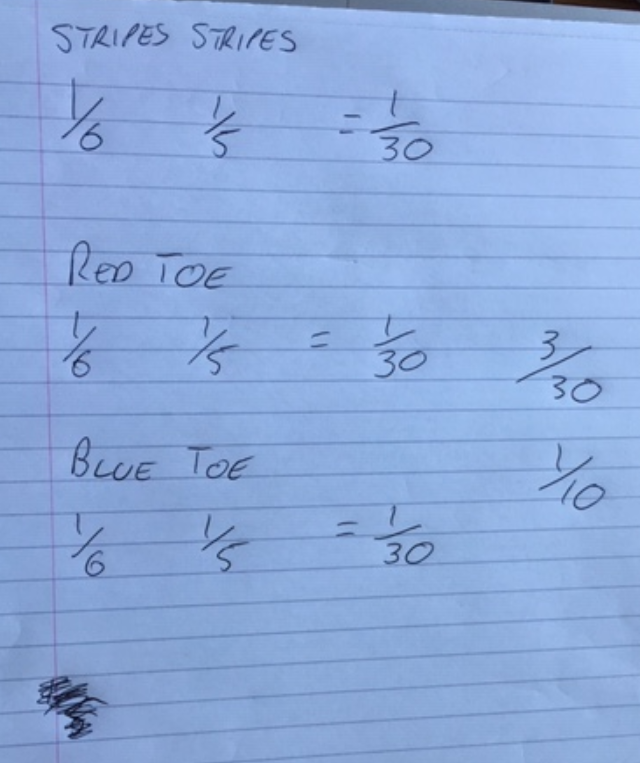 STRIPES STRIPES
1/6 1/5 = 1/30
RED TOE
1/6 1/5 = 1/30 3/30
BLUE TOE 1/10
1/6 1/5 = 1/30